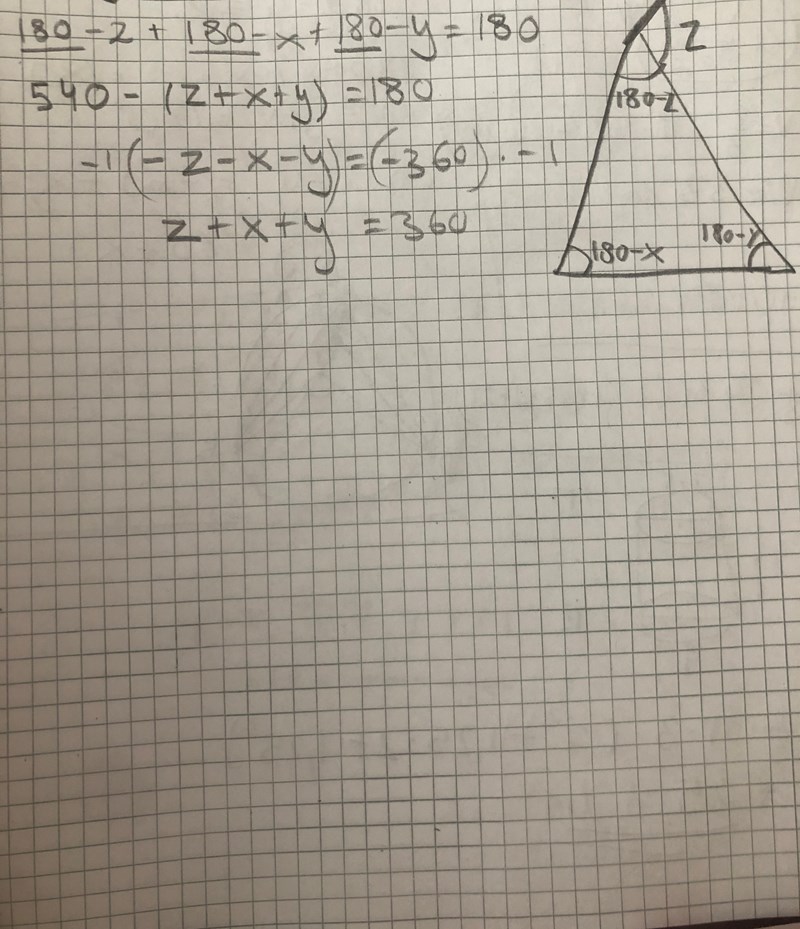 180-z + 180-x + 180-y = 180
540 - (z+x+y) = 180
-1(-z-x-y)=(-360)·-1
z+x+y = 360
z
180-z
180-x
180-y